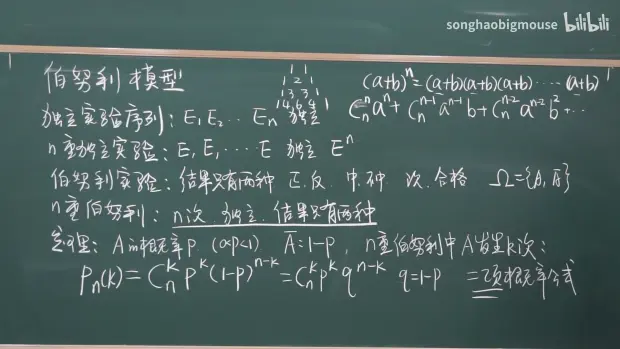 songhaobigmouse bilibili
伯努利模型
1 1
1 2 1
1 3 3 1
1 4 6 4 1
(a+b)^n=(a+b)(a+b)(a+b)⋯(a+b)
C_n^n a^n + C_n^{n-1} a^{n-1} b + C_n^{n-2} a^{n-2} b^2 + ⋯
独立实验序列: E₁ E₂ ⋯ Eₙ 独立
n重独立实验: E, E, ⋯ E 独立 E^n
伯努利实验: 结果只有两种 正.反 中.不中. 次.合格 Ω={A, Ā}
n重伯努利: n次 独立. 结果只有两种
定理: A的概率P (0<P<1) Ā=1-P, n重伯努利中A发生k次:
Pₙ(k)=C_n^k P^k (1-P)^{n-k} = C_n^k P^k q^{n-k} q=1-P 二项概率公式